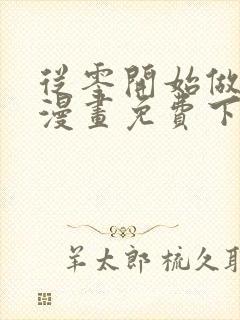 從零開始做
漫畫免費下
羊太郎 梳久耳